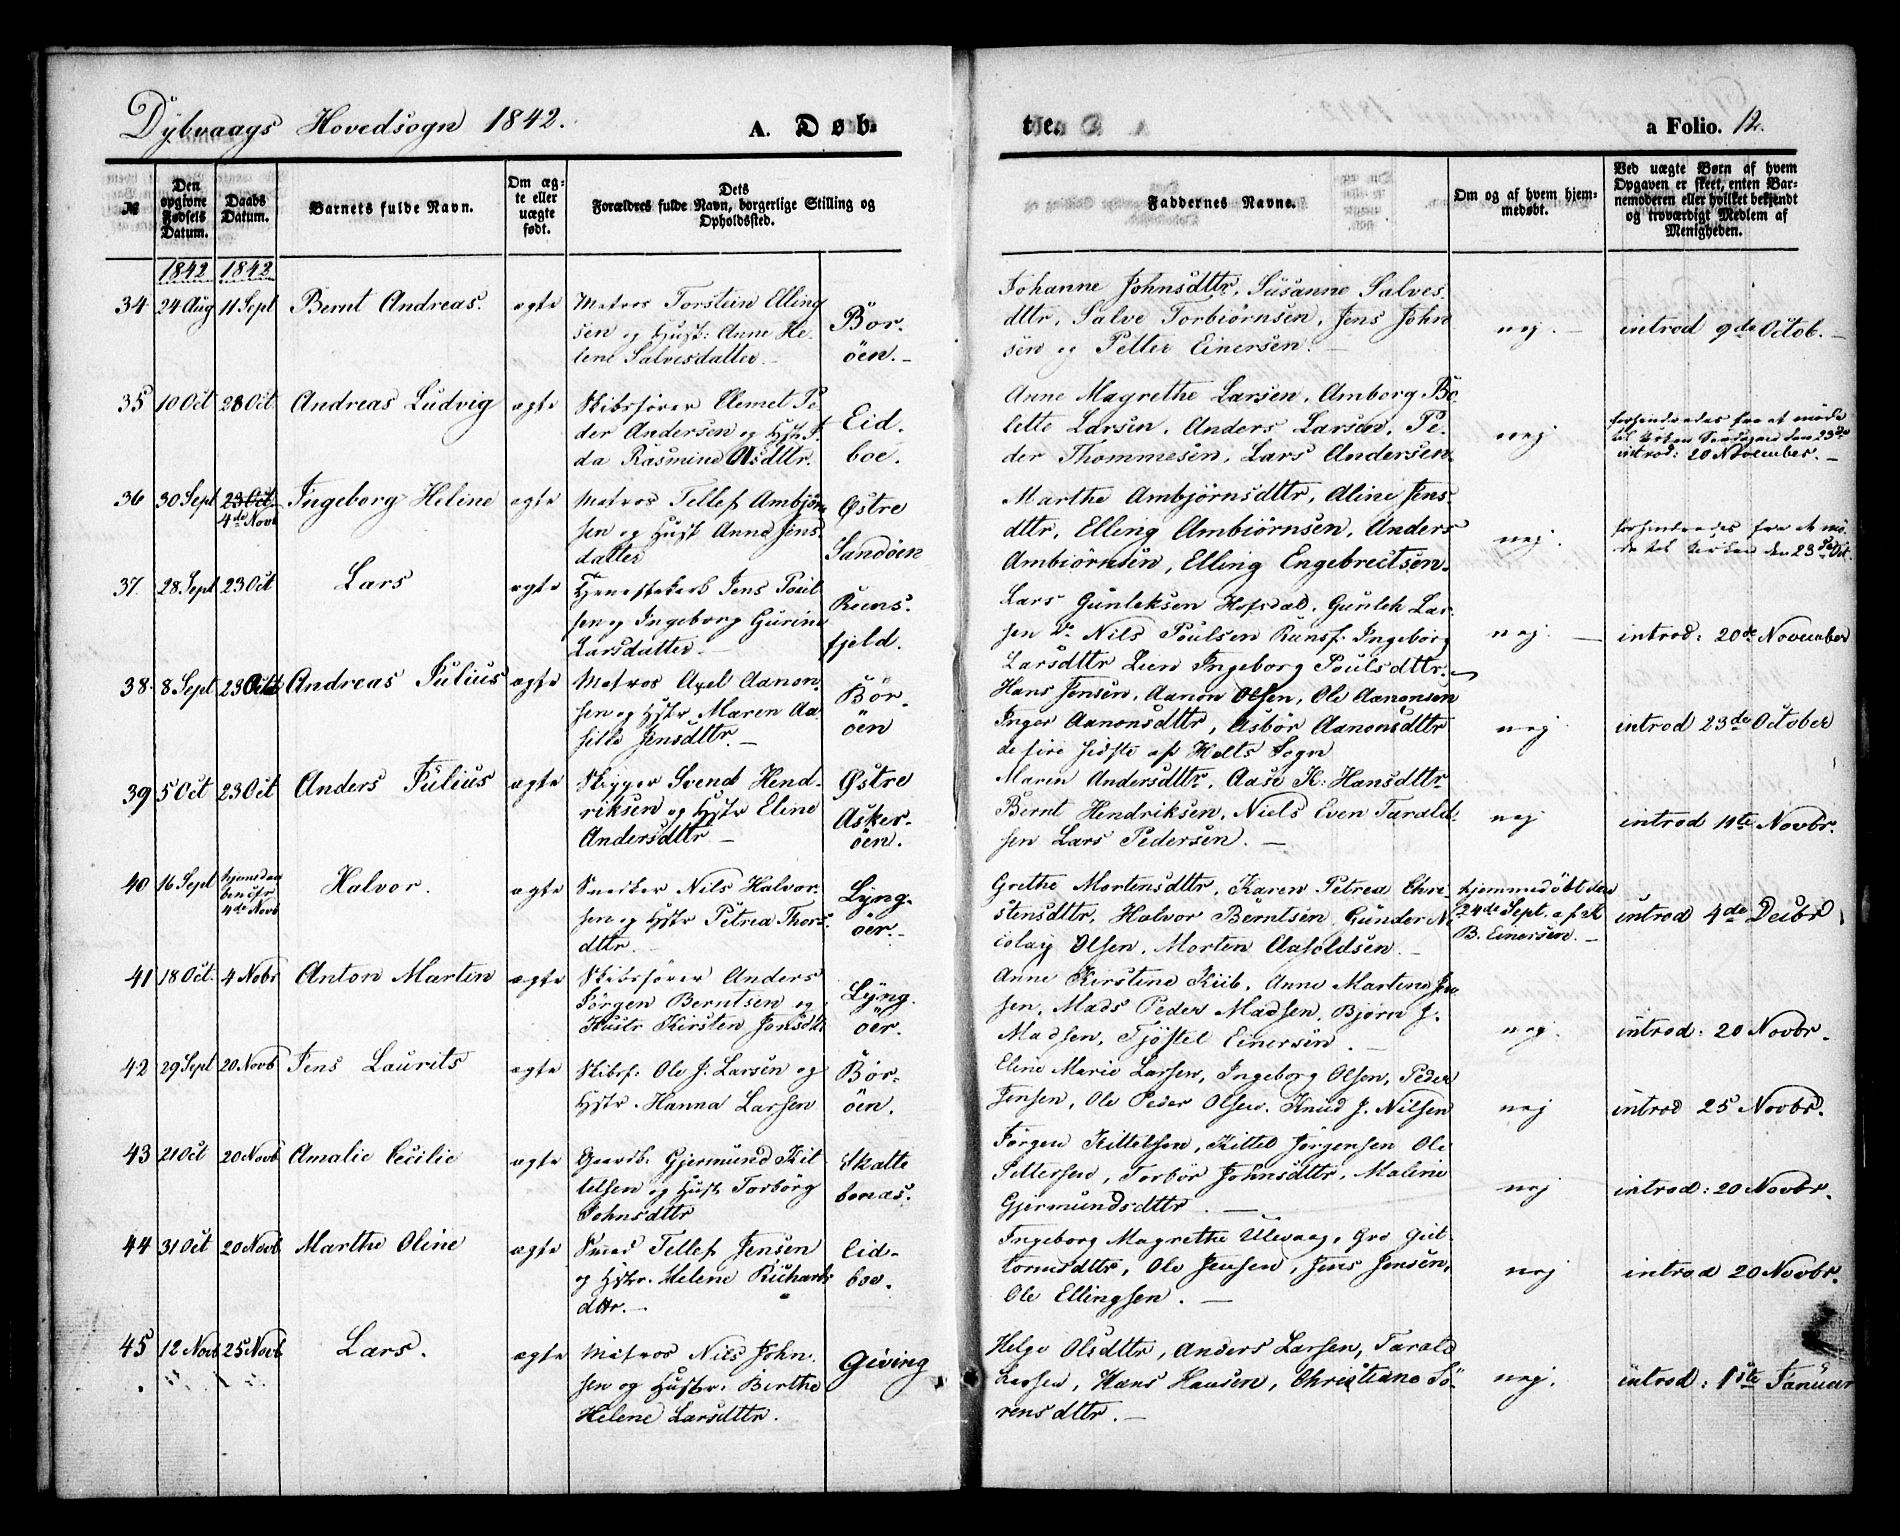 Dybvaags Hovedsogn 1842. A. Døb-
te. a Folio. 12.
№
Den opgivne Fødsels Datum.
Daabs Datum.
Barnets fulde Navn.
Om ægte eller uægte født.
Dets
Forældres fulde Navn, borgerlige Stilling og
Opholdssted.
Faddernes Navne.
Om og af hvem hjem-
medøbt.
Ved uægte Børn af hvem
Opgaven er skeet, enten Bar-
nemoderen eller hvilket bekjendt
og troværdigt Medlem af
Menigheden.
1842 1842
34 24 Aug 11 Sept Bernt Andreas. ægte
Matros Torstein Elling
sen og Hust: Anne He-
lene Salvesdatter.
Bör-
öen.
Johanne Johnsdttr, Susanne Salves
dttr, Salve Torbiörnsen, Jens John
sen og Petter Einersen.
nej. introd 9de Octob.
35 10 Oct 23 Oct Andreas Ludvig ægte
Skibsfører Clemet Pe
der Andersen og Hstr I-
da Rasmine Olsdttr.
Eid-
boe.
Anne Magrethe Larsen, Amborg Bo
lette Larsen, Anders Larsen, Pe-
der Thommesen, Lars Andersen
nej
forhindredes fra at møde
til Kirken Søndagen den 23de
introd: 20 November.
36 30 Sept 23 Oct 4de Novb Ingeborg Heline ægte
Matros Tellef Ambjörn
sen og Hust Anne Jens
datter
Østre
Sandöen
Marthe Ambjörnsdttr, Aline Jens-
dttr, Elling Ambiörnsen, Anders
Ambiörnsen, Elling Engebrectsen
nej.
forhindredes fra at mö-
de til Kirken den 23de Oct.
37. 28 Sept 23 Oct Lars ægte
Jens Poul
sen og Ingeborg Gurine
Larsdatter.
fjeld.
Lars Gunleksen Hofsdal, Gunlek Lar-
sen Do Nils Poulsen Ramsf. Ingeborg
Larsdttr Lien Ingeborg Poulsdttr.
nej. introd: 20de November
38. 8 Sept 23 Octob Andreas Julius ægte
Matros Axel Aanon-
sen og Hstr Maren Aa-
sille Jensdttr.
Bör-
öen
Hans Jensen, Aanon Olsen, Ole Aanonsen
Inger Aanonsdttr, Asbör Aanonsdttr
de fire sidste af Holts Sogn
nej introd 23de October
39 5 Oct 23 Oct Anders Julius ægte
Skipper Svend Hend-
riksen og Hstr Eline
Andersdttr
Østre
Asker-
öen.
Maren Andersdttr, Aase K: Hansdttr
Bernt Hendriksen, Niels Even Tarald-
sen Lars Pedersen.
nej introd 11te Novbr.
40 16 Sept hjemedaaben 4de Novb Halvor. ægte
Snedker Nils Halvor-
sen og Hstr Petrea Thors-
dttr.
Lyng-
öer.
Grethe Mortensdttr, Karen Petrea Chri
stensdttr, Halvor Berntsen Gunder Ni
colay Olsen, Morten Aasoldsen
hjemmedöbt den
24de Sept. af K
B. Einersen.
introd 4de Decbr
41 18 Oct. 4 Nobr Anton Martin ægte
Skibsfører Anders
Jörgen Berntsen og
Hustr Kirsten Jonsdtt
Lyng-
öer.
Anne Kirstine Kiib, Anne Martine
sen, Mads Peder Madsen, Bjørn J.
Madsen, Tjöstel Einersen.
nej. introd: 20 Novbr.
42 29 Sept 20 Novb Jens Laurits ægte
Skibsf: Ole J. Larsen og
Hstr. Hanna Larsen
Bör-
öen.
Eline Marie Larsen, Ingeborg Olsen, Peder
Jensen, Ole Peder Olsen. Knud J. Nilsen
nej introd 25 Novbr.
43 21 Oct 20 Novb Amalie Cecilie ægte
Gaardb. Gjermund Kit
telsen og Hust Torborg
Johnsdttr
Skatte
boenæs.
Jörgen Kittelsen, Kittel Jörgensen Ole
Pettersen, Torbör Johnsdttr, Malene
Gjermundsdttr.
nej introd: 20 Novbr.
44 31 Oct 20 Novb Marthe Oline ægte
Smed Tellef Jensen
og Hstr. Helene Richards
dttr.
Eid-
boe.
Ingeborg Magrethe Ulevaag, Gro Gut-
tormsdttr, Ole Jensen, Jens Jensen,
Ole Ellingsen.
nej introd 20 Novbr.
45 12 Novb 25 Novb. Lars. ægte
Matros Nils John-
sen og Hustr. Berthe
Helene Larsdttr.
Giving
Helge Olsdttr, Anders Larsen, Tarald
Larsen, Hans Hansen, Christiane Sö-
rensdttr.
nej. introd: 1ste Januar